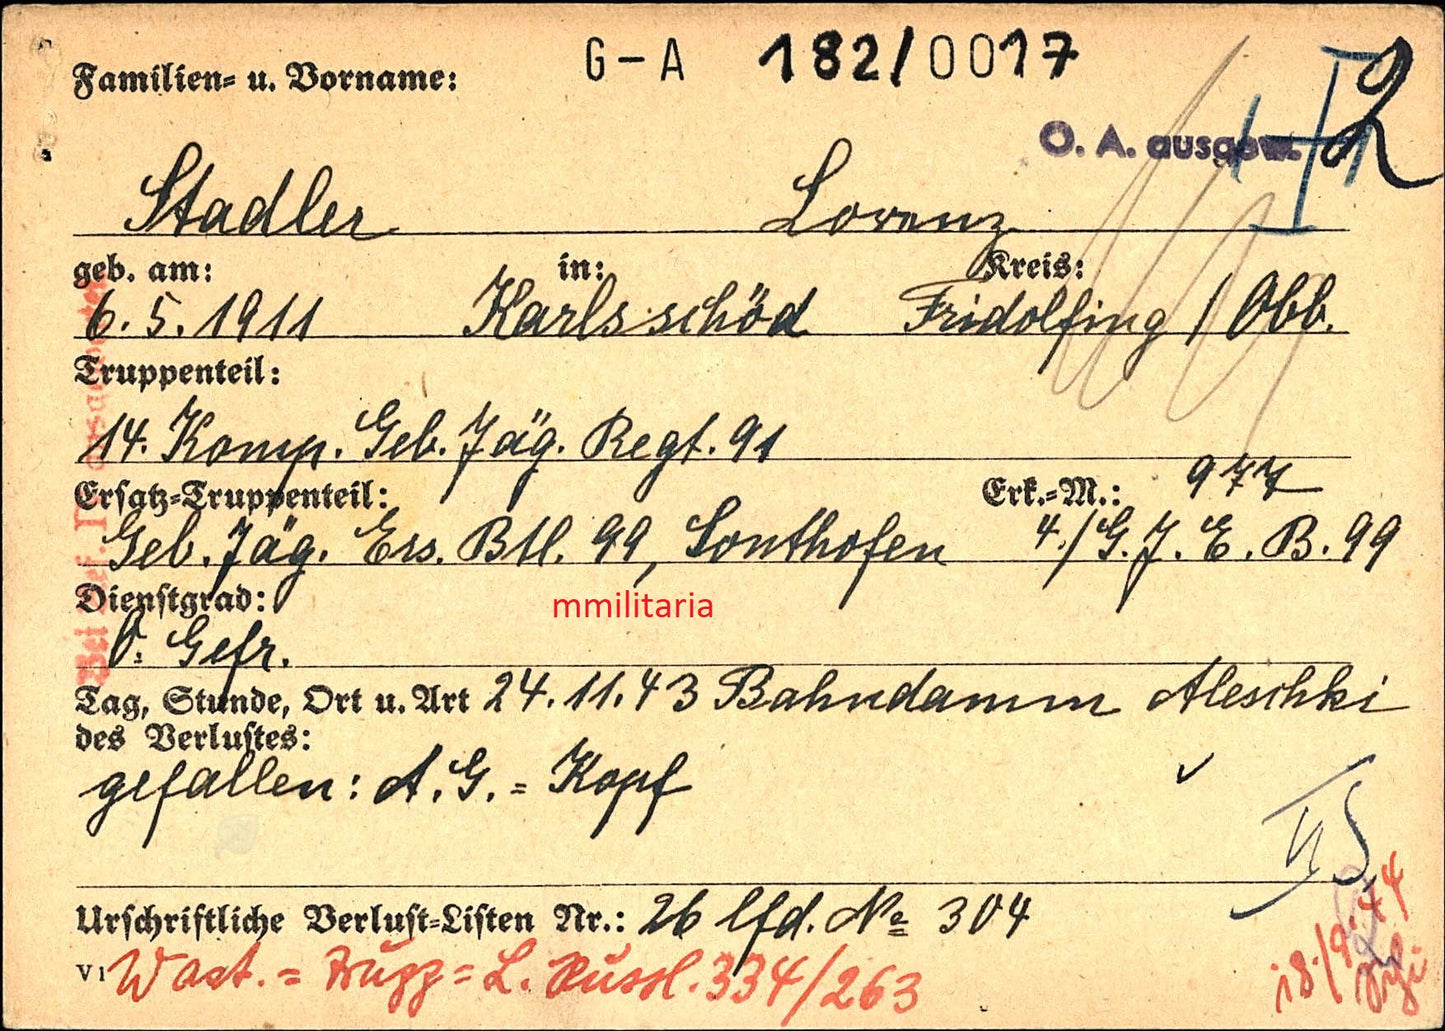 G-A 182/0017
Familien- u. Vorname:
O. A. ausgew. 2
Stadler Lorenz
geb. am: in: Kreis:
6.5.1911 Karlsschöd Fridolfing / Obb.
Truppenteil:
14. Komp. Geb. Jäg. Regt. 91
Ersatz-Truppenteil: Erk.-M.: 977
Geb. Jäg. Ers. Btl. 99, Sonthofen 4./G.J.E.B. 99
Dienstgrad:
mmilitaria
O. Gefr.
Tag, Stunde, Ort u. Art 24.11.43 Bahndamm Aleschki
des Verlustes:
gefallen: A.G. = Kopf
Urschriftliche Verlust-Listen Nr.: 26 lfd. № 304
V1 Wast. = L. Russl. 334/263
18./9.44